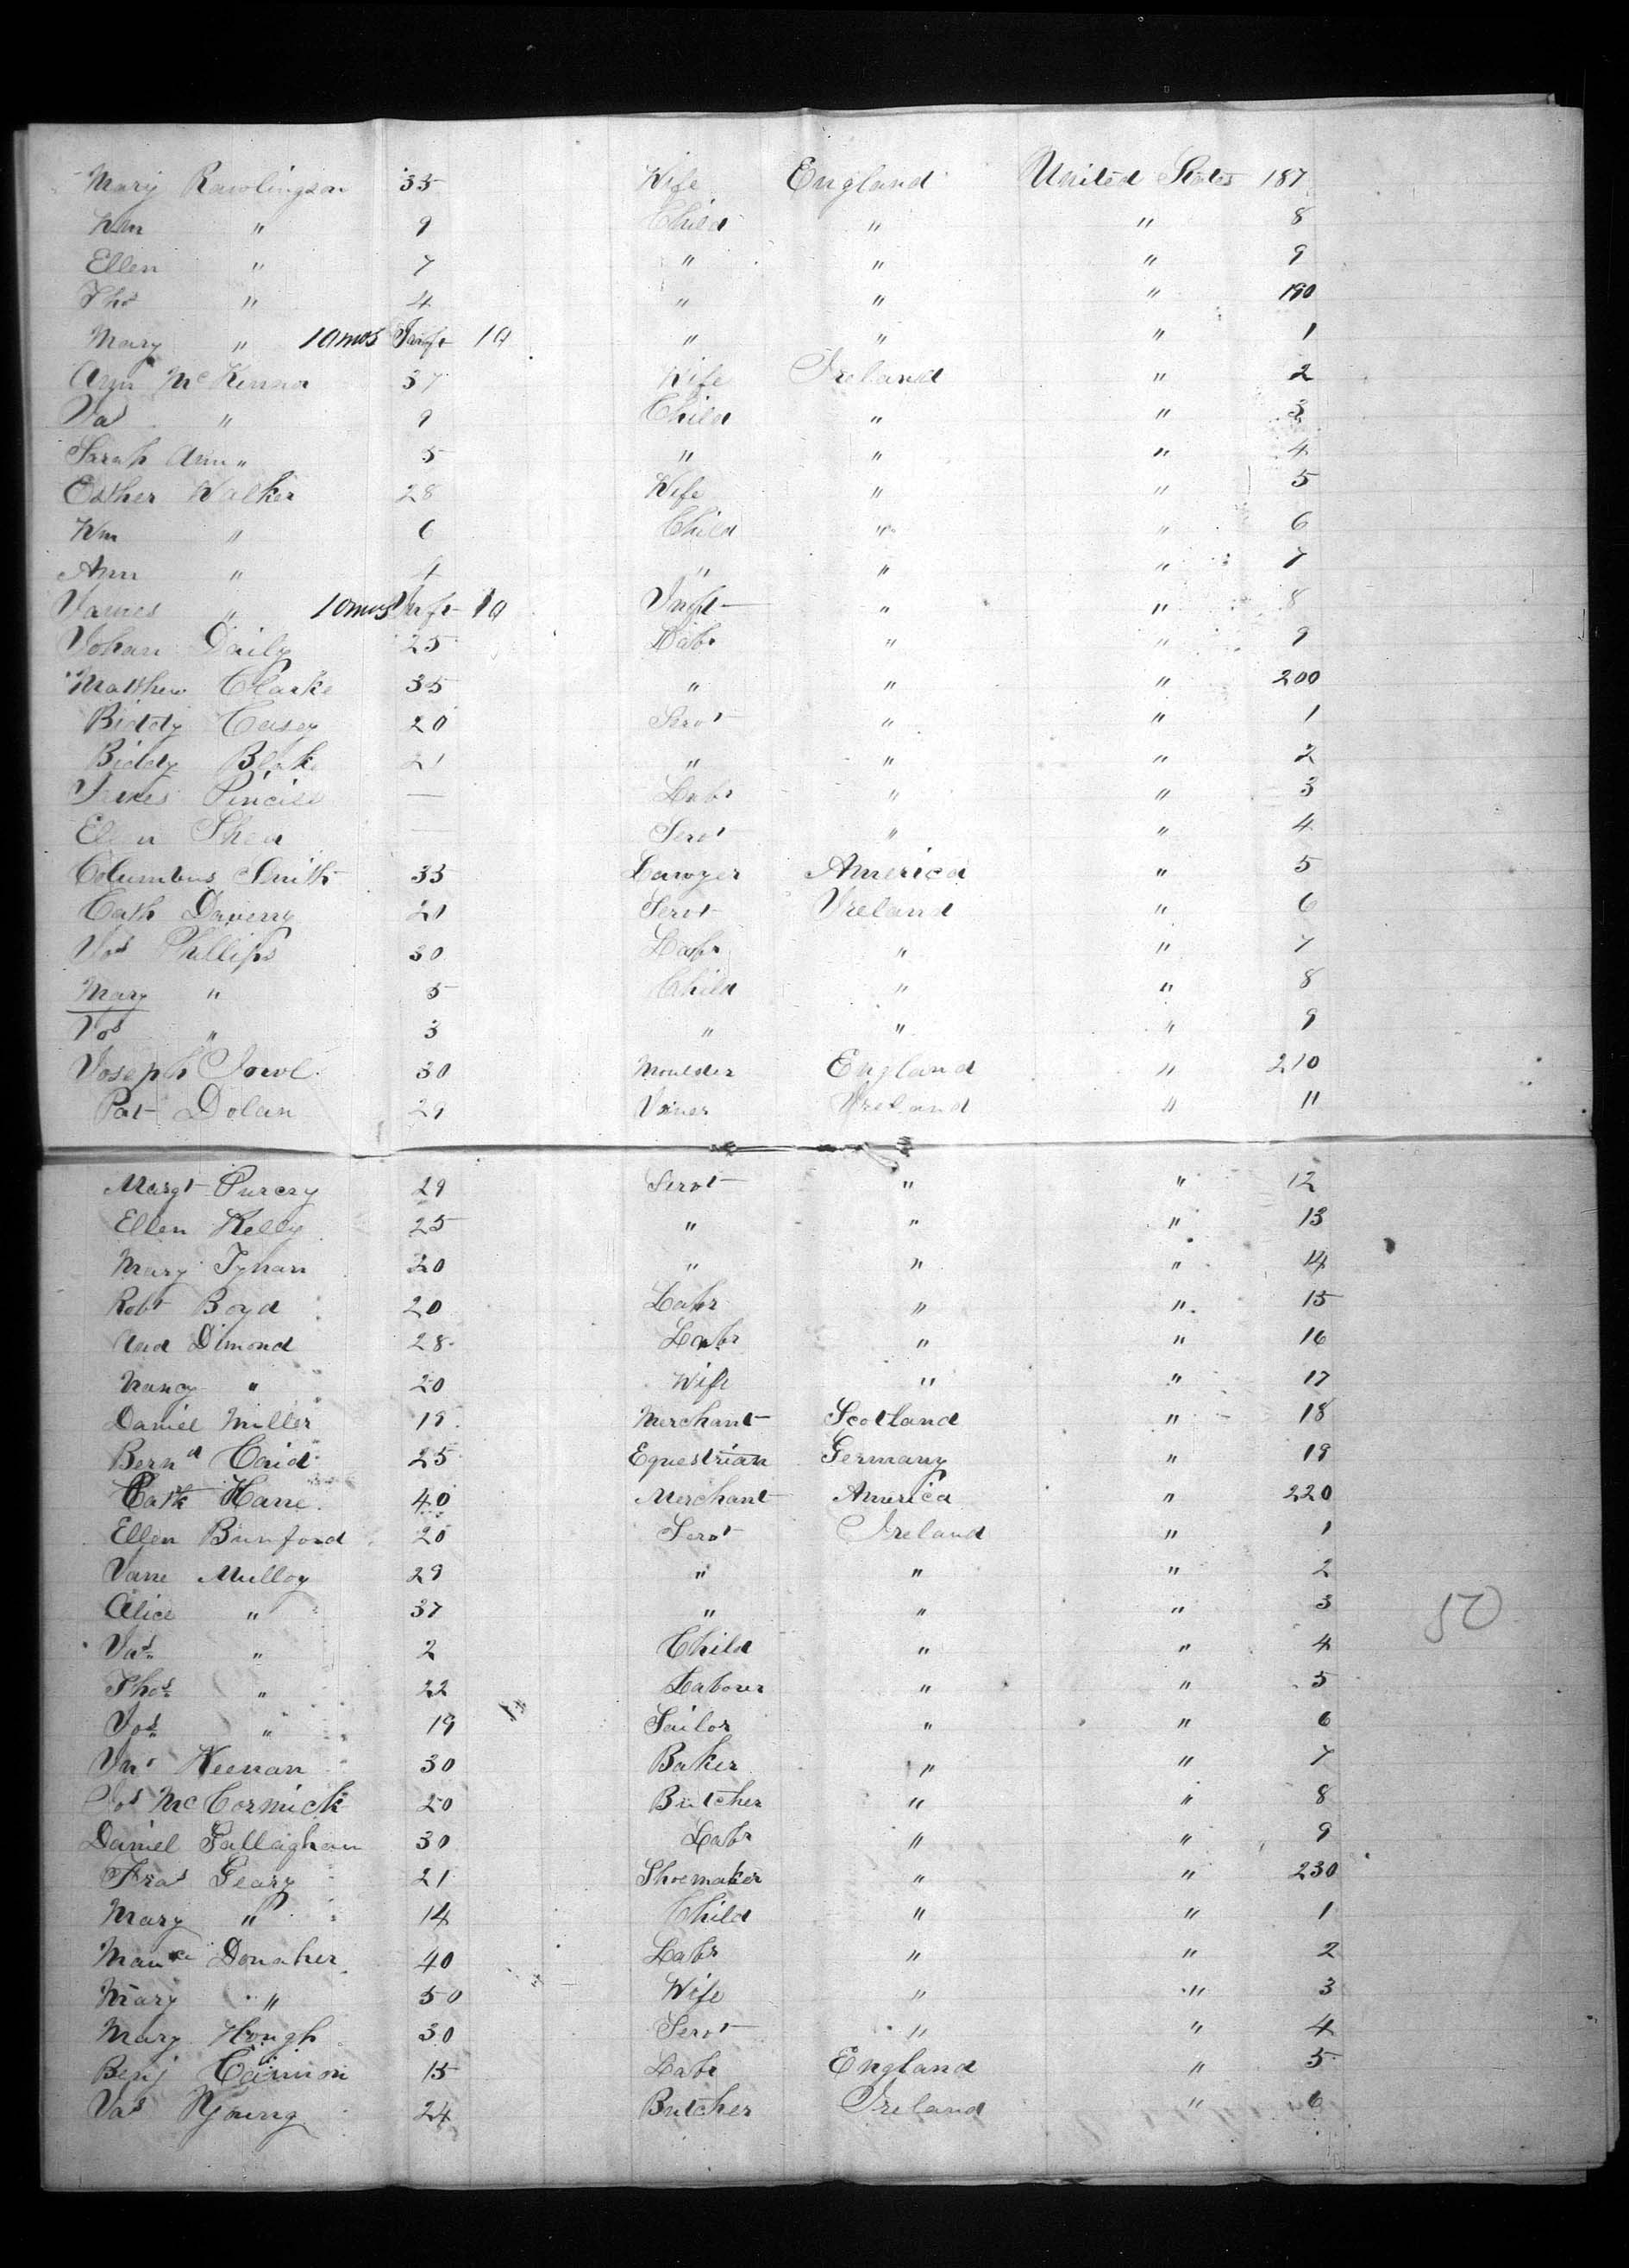 Mary Rawlingson 35 Wife England United States 187
Wm " 9 Child " " 8
Ellen " 7 " " " 9
Thos " 4 " " " 190
Mary " 10mos Infr 10 " " " 1
Ann McKenna 37 Wife Ireland " 2
Jas " 9 Child " " 3
Sarah Ann " 5 " " " 4
Esther Walker 28 Wife " " 5
Wm " 6 Child " " 6
Ann " 4 " " " 7
James " 10mos Infr 10 Inft " " 8
Johan Daily 25 Labr " " 9
Matthew Clarke 35 " " " 200
Biddy Casey 20 Servt " " 1
Biddy Blake 21 " " " 2
James — Labr " " 3
Ellen Shea — Servt " " 4
Columbus Smith 33 Lawyer America " 5
Cath Daverry 21 Servt Ireland " 6
Jos Phillips 30 Labr " " 7
Mary " 5 Child " " 8
Jos " 3 " " " 9
Joseph 30 Moulder England " 210
Pat Dolan 29 Ireland " 11
Margt Purcry 29 Servt " " 12
Ellen Kelly 25 " " " 13
Mary Tyhan 20 " " " 14
Robt Boyd 20 Labr " " 15
And Dimond 28 Labr " " 16
Nancy " 20 Wife " " 17
Daniel Miller 19 Merchant Scotland " 18
Bernd Caid 25 Equestrian Germany " 19
Kane 40 Merchant America " 220
Ellen Bunford 20 Servt Ireland " 1
Jane Mulloy 29 " " " 2
Alice " 37 " " " 3
Jas " 2 Child " " 4
Thos " 22 Labour " " 5
Jos " 19 Tailor " " 6
Jno Keenan 30 Baker " " 7
Jos McCormick 20 Butcher " " 8
Daniel Gallaghan 30 Labr " " 9
Fras Geary 21 Shoemaker " " 230
Mary " 14 Child " " 1
Maurce Donaher 40 Labr " " 2
Mary " 50 Wife " " 3
Mary Hough 30 Servt " " 4
Benj Cannon 15 Labr England " 5
Jas Young 24 Butcher Ireland " 6
50